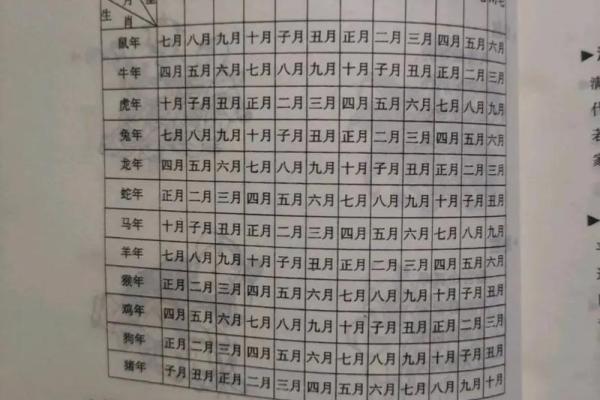 月
生 肖
鼠年 七月 八月 九月 十月 子月 丑月 正月 二月 三月 四月 五月 六月
牛年 四月 五月 六月 七月 八月 九月 十月 子月 丑月 正月 二月 三月
虎年 十月 子月 丑月 正月 二月 三月 四月 五月 六月 七月 八月 九月
兔年 七月 八月 九月 十月 子月 丑月 正月 二月 三月 四月 五月 六月
龙年 四月 五月 六月 七月 八月 九月 十月 子月 丑月 正月 二月 三月
蛇年 正月 二月 三月 四月 五月 六月 七月 八月 九月 十月 子月 丑月
马年 十月 子月 丑月 正月 二月 三月 四月 五月 六月 七月 八月 九月
羊年 七月 八月 九月 十月 子月 丑月 正月 二月 三月 四月 五月 六月
猴年 正月 二月 三月 四月 五月 六月 七月 八月 九月 十月 子月 丑月
鸡年 四月 五月 六月 七月 八月 九月 十月 子月 丑月 正月 二月 三月
狗年 正月 二月 三月 四月 五月 六月 七月 八月 九月 十月 子月 丑月
猪年 子月 丑月 正月 二月 三月 四月 五月 六月 七月 八月 九月 十月
满
代
若
家